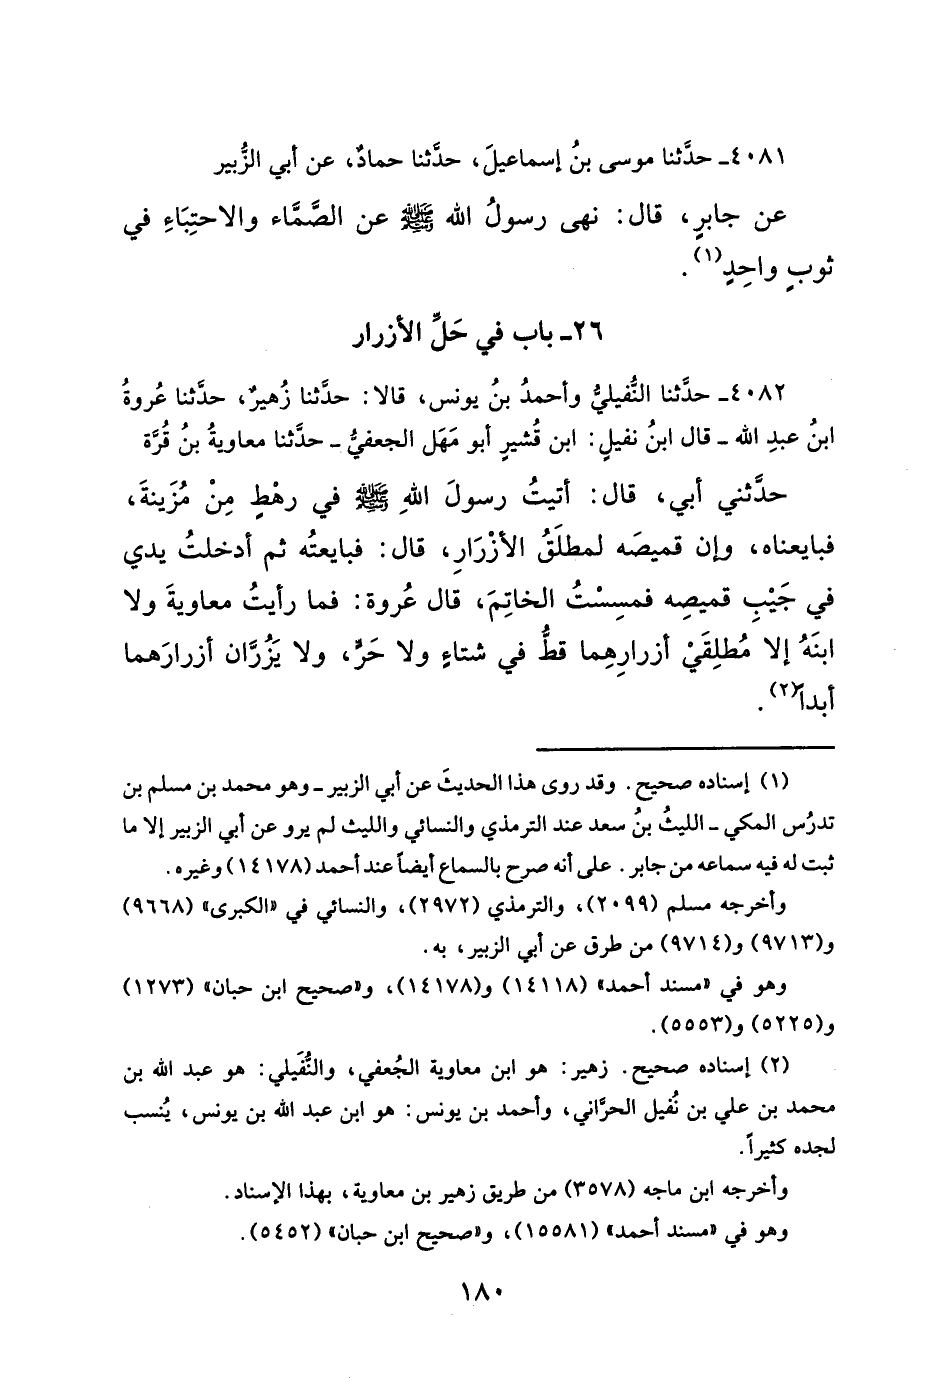 ٤٠٨١ـ حدَّثنا موسى بنُ إسماعيلَ، حدَّثنا حمادٌ، عن أبي الزُّبير
عن جابرٍ، قال: نهى رسولُ الله ﷺ عن الصَّمَّاء والاحتِبَاءِ في
ثوبٍ واحِدٍ(١).
٢٦ـ باب في حَلِّ الأزرار
٤٠٨٢ـ حدَّثنا النُّفيليُّ وأحمدُ بنُ يونس، قالا: حدَّثنا زُهيرٌ، حدَّثنا عُروةُ
ابنُ عبدِ الله ـ قال ابنُ نفيلٍ: ابن قُشيرٍ أبو مَهَل الجعفيُّ ـ حدَّثنا معاويةُ بنُ قُرَّة
حدَّثني أبي، قال: أتيتُ رسولَ اللهِ ﷺ في رهْطٍ مِنْ مُزَينةَ،
فبايعناه، وإن قميصَه لمطلَقُ الأزْرَارِ، قال: فبايعتُه ثم أدخلتُ يدي
في جَيْبِ قميصِه فمسِسْتُ الخاتِمَ، قال عُروة: فما رأيتُ معاويةَ ولا
ابنَهُ إلا مُطلِقَيْ أزرارِهِما قطُّ في شتاءٍ ولا حَرٍّ، ولا يَزُرَّان أزرارَهما
أبداً(٢).
(١) إسناده صحيح. وقد روى هذا الحديثَ عن أبي الزبير ـ وهو محمد بن مسلم بن
تدرُس المكي ـ الليثُ بنُ سعد عند الترمذي والنسائي والليث لم يرو عن أبي الزبير إلا ما
ثبت له فيه سماعه من جابر. على أنه صرح بالسماع أيضاً عند أحمد (١٤١٧٨) وغيره.
وأخرجه مسلم (٢٠٩٩)، والترمذي (٢٩٧٢)، والنسائي في «الكبرى» (٩٦٦٨)
و(٩٧١٣) و(٩٧١٤) من طرق عن أبي الزبير، به.
وهو في «مسند أحمد» (١٤١١٨) و(١٤١٧٨)، و«صحيح ابن حبان» (١٢٧٣)
و(٥٢٢٥) و(٥٥٥٣).
(٢) إسناده صحيح. زهير: هو ابن معاوية الجُعفي، والنُّفَيلي: هو عبد الله بن
محمد بن علي بن نُفيل الحرَّاني، وأحمد بن يونس: هو ابن عبد الله بن يونس، يُنسب
لجده كثيراً.
وأخرجه ابن ماجه (٣٥٧٨) من طريق زهير بن معاوية، بهذا الإسناد.
وهو في «مسند أحمد» (١٥٥٨١)، و«صحيح ابن حبان» (٥٤٥٢).
١٨٠